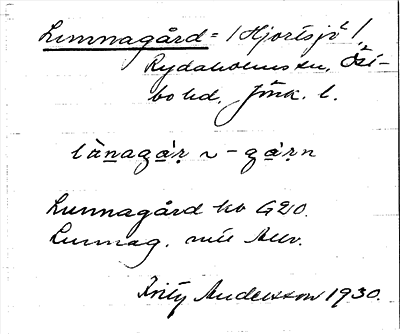 Linnagård = / Hjortsjö /,
Rydaholms sn, Öst-
bo hd, Jönk. l.
lànagá.r ~ -gá.rn
Linnagård hb G20.
Linnag. mtl
Fritz Andersson 1930.